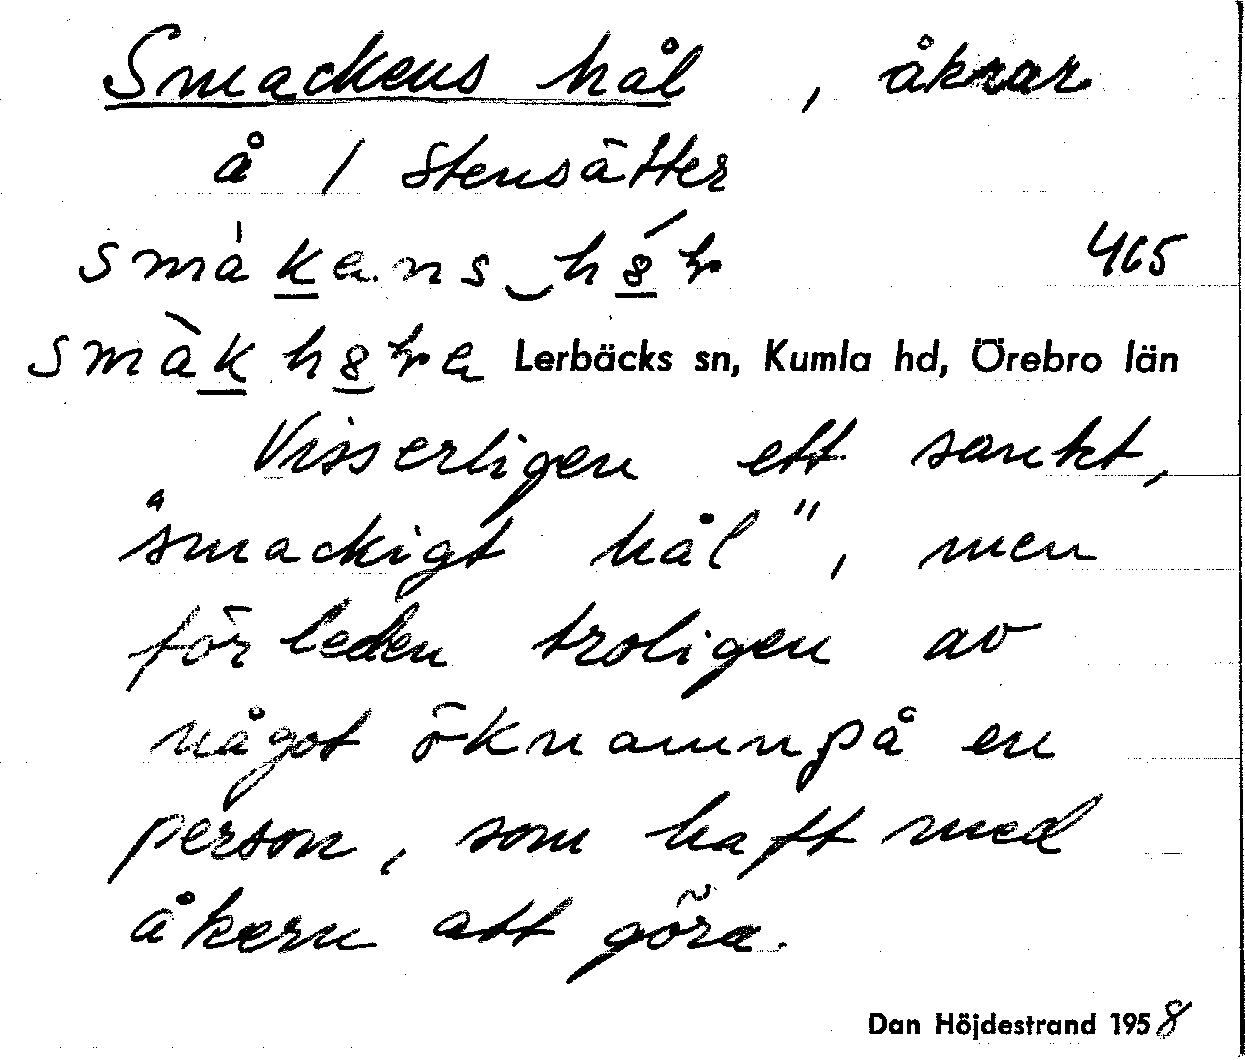 Smackens hål, åkrar
å 1 Stensätter
465
Lerbäcks sn, Kumla hd, Örebro län
Visserligen ett sankt,
"smackigt hål", men
förleden troligen av
något öknamn på en
person, som haft med
åkern att göra.
Dan Höjdestrand 1958